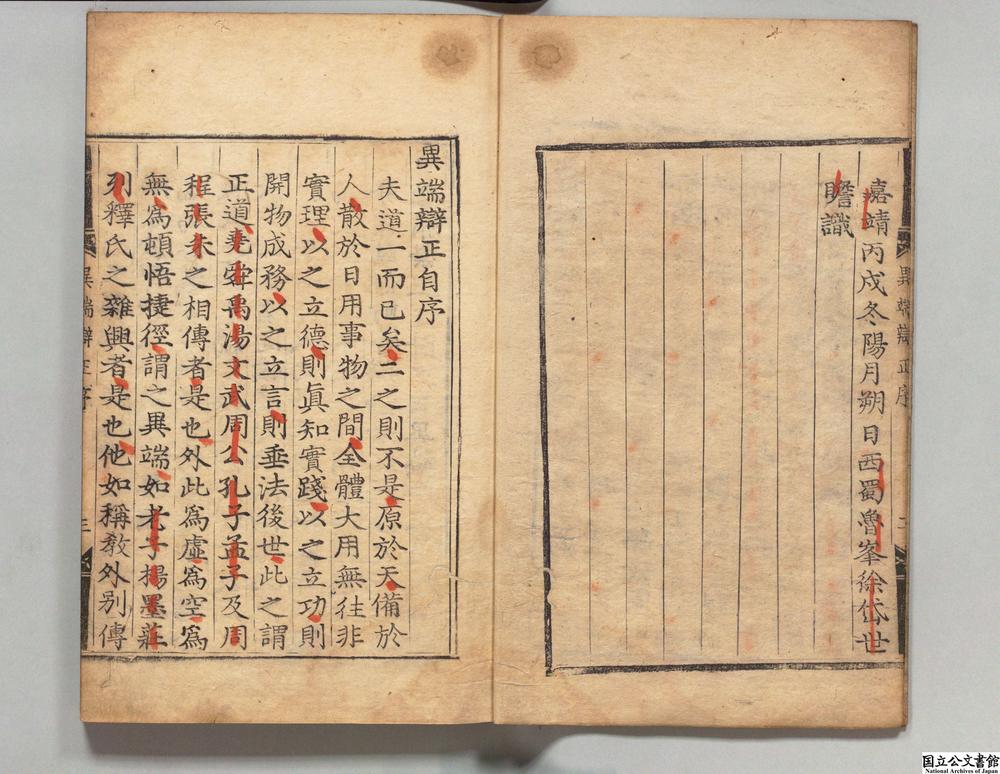 嘉靖丙戌冬陽月朔日西蜀魯峯徐岱世
瞻識
異端辯正序
二
異端辯正自序
夫道一而已矣二之則不是原於天備於
人散於日用事物之間全體大用無往非
實理以之立德則眞知實踐以之立功則
開物成務以之立言則垂法後世此之謂
正道堯舜禹湯文武周公孔子孟子及周
程張朱之相傳者是也外此爲虛爲空爲
無爲頓悟捷徑謂之異端如老子揚墨莊
列釋氏之雜興者是也他如稱教外别傳
異端辯正序
三
国立公文書館
National Archives of Japan